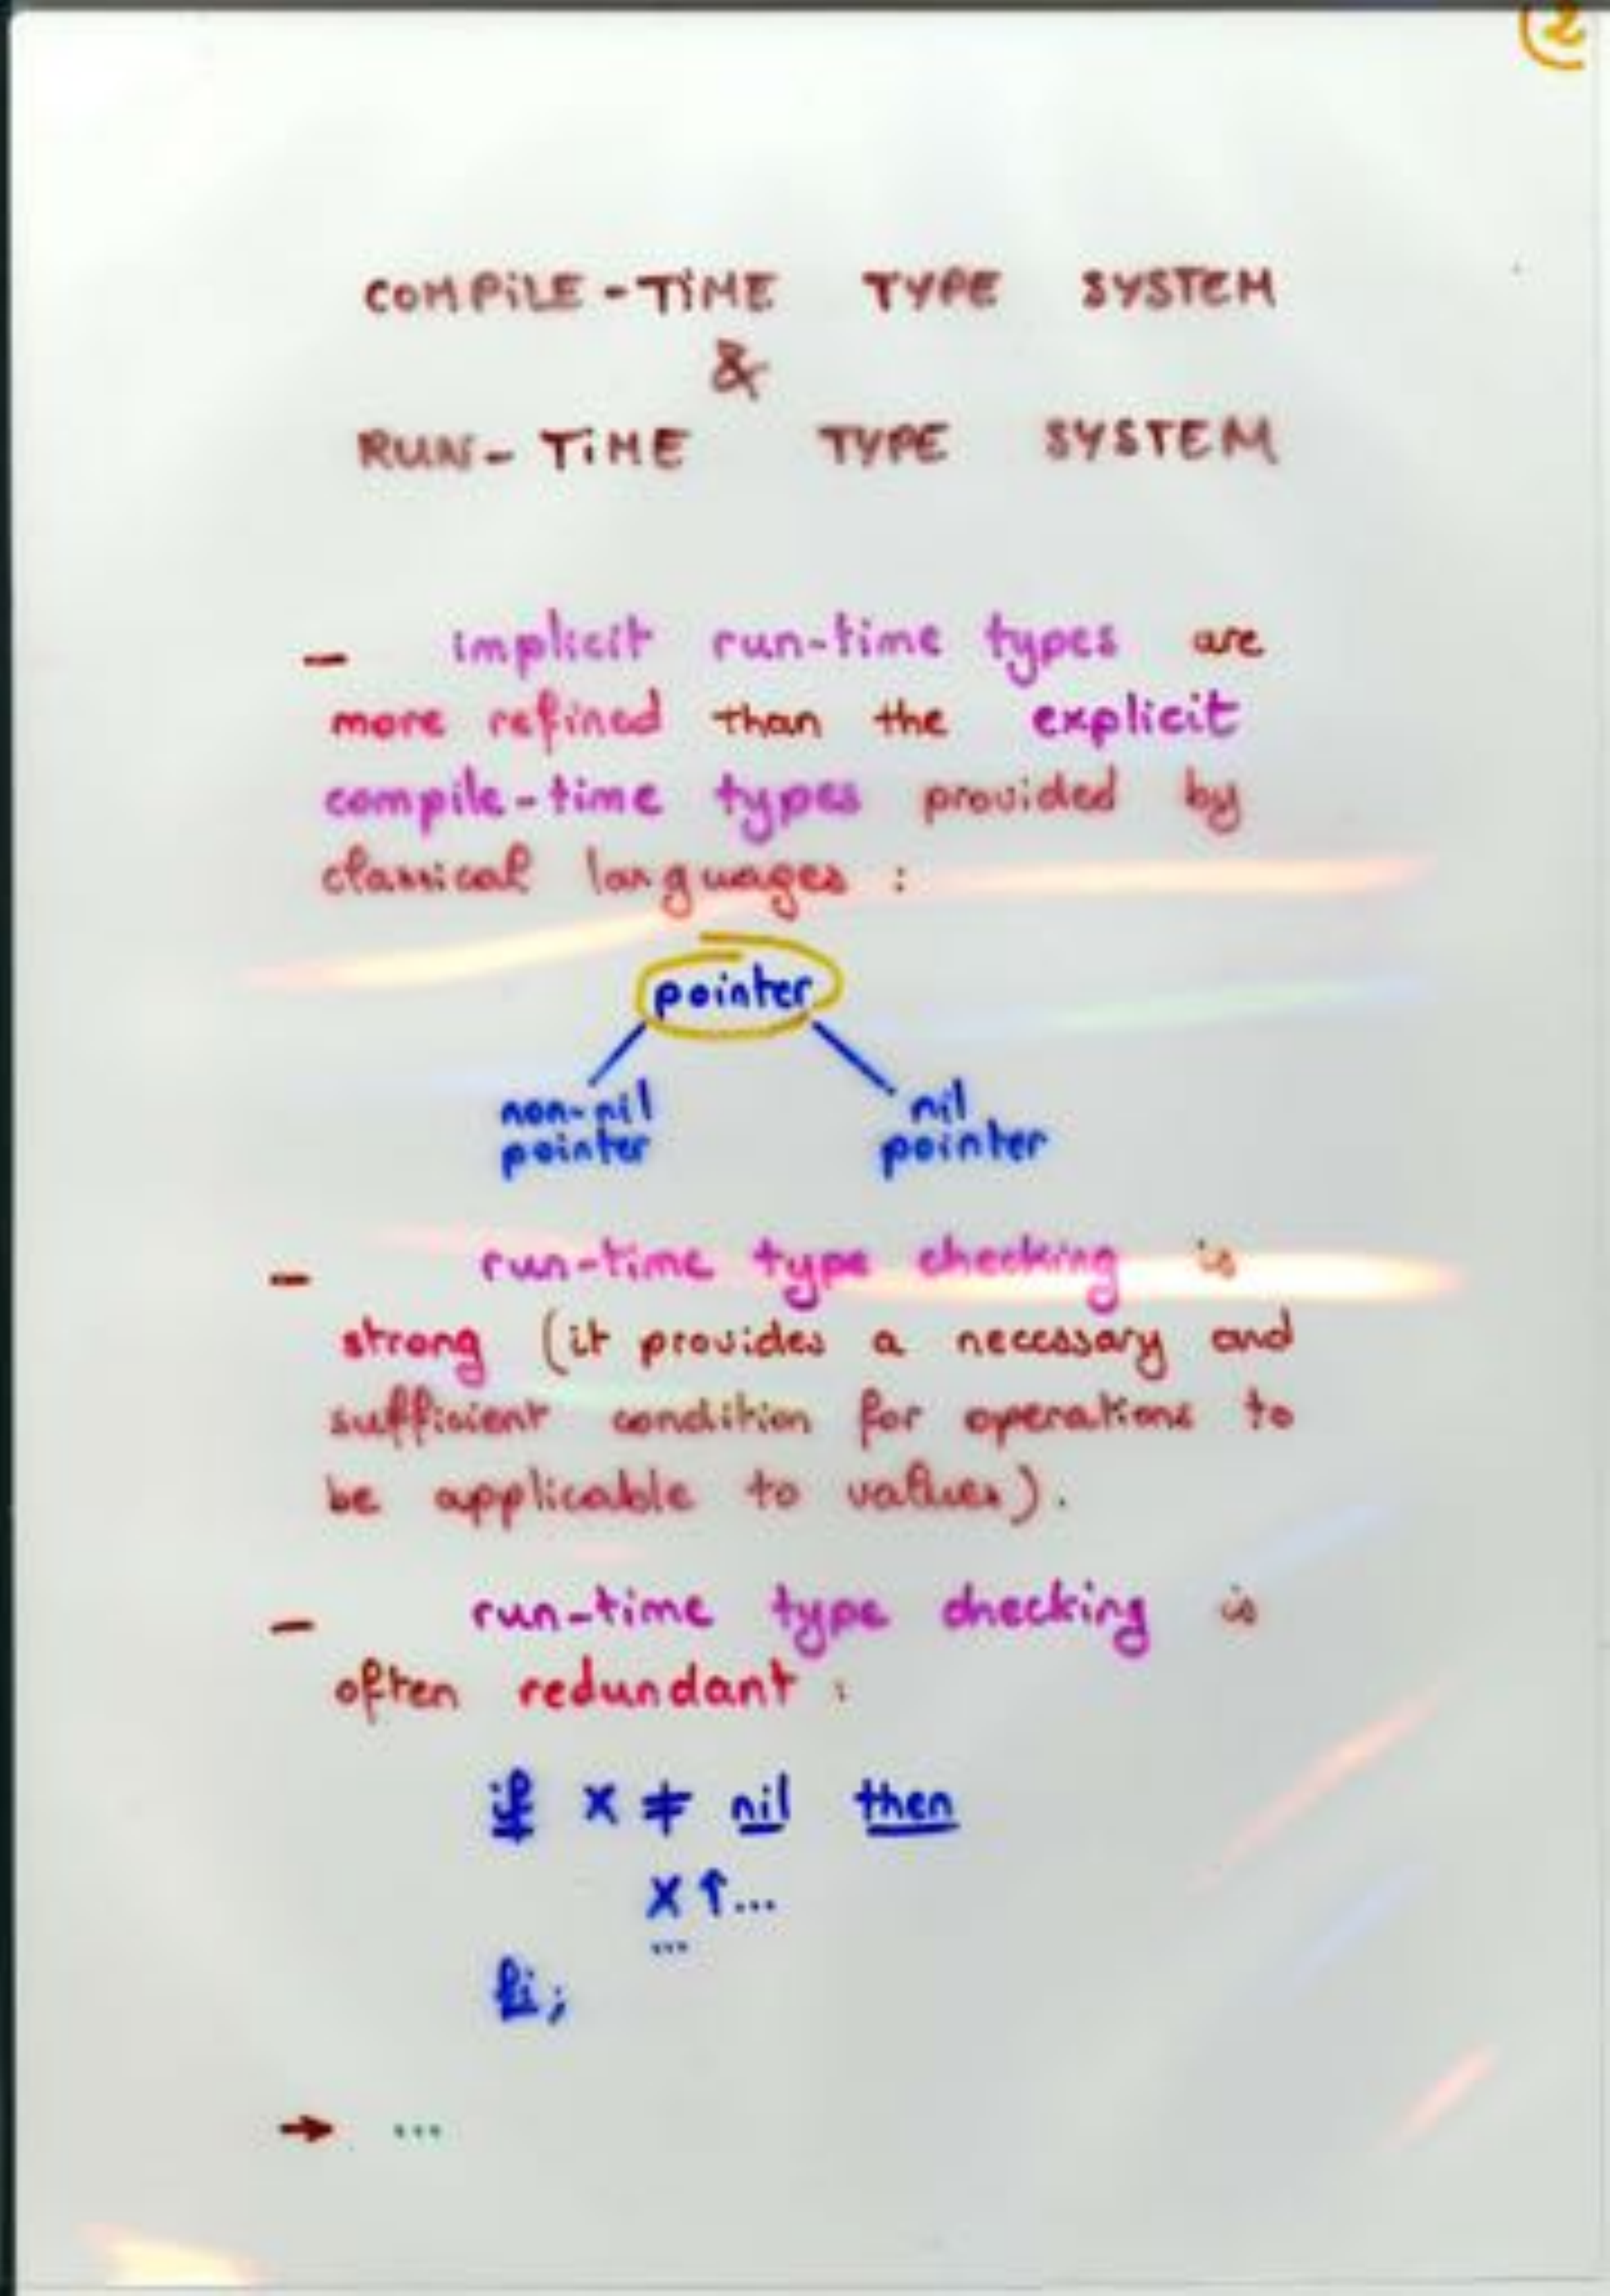 2
COMPILE-TIME TYPE SYSTEM
&
RUN-TIME TYPE SYSTEM
- implicit run-time types are
more refined than the explicit
compile-time types provided by
classical languages :
pointer
non-nil nil
pointer pointer
- run-time type checking is
strong (it provides a necessary and
sufficient condition for operations to
be applicable to values).
- run-time type checking is
often redundant :
if x ≠ nil then
x↑...
...
fi;
→ ...